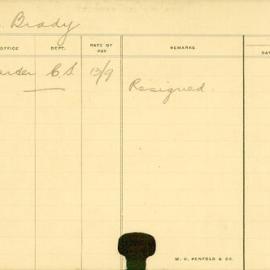 Brady
OFFICE DEPT. RATE OF PAY REMARKS
C.S. 13/9 Resigned.
W. C. PENFOLD & CO.